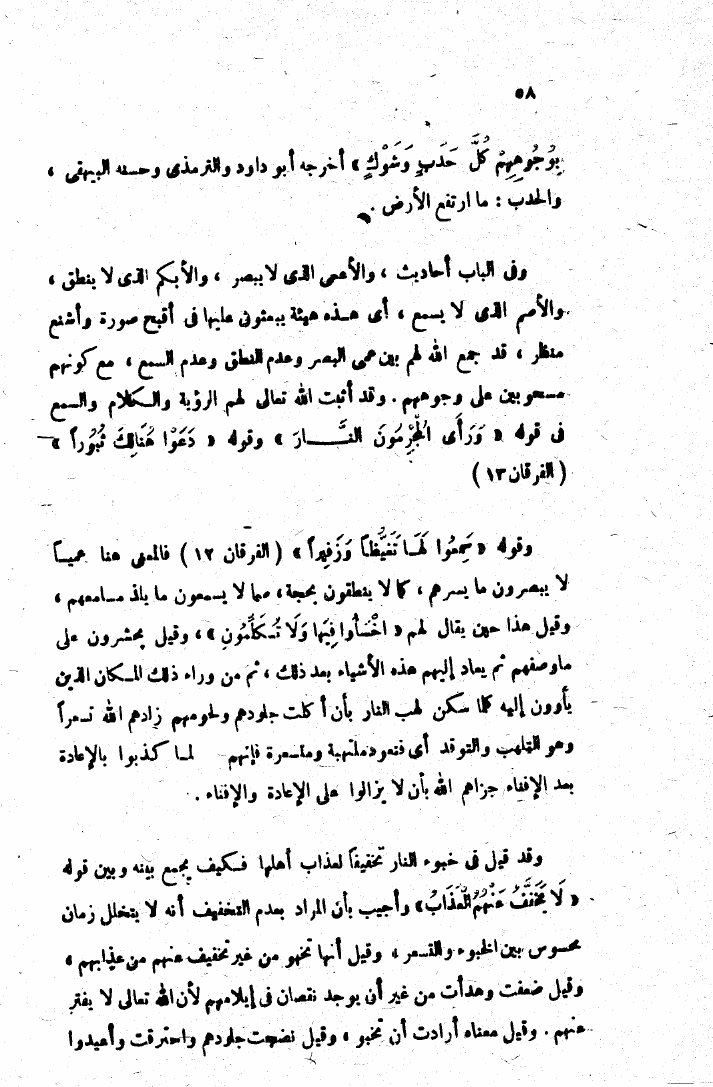 ٥٨
بِوُجُوهِهِمْ كُلَّ حَدَبٍ وَشَوْكٍ» أخرجه أبو داود والترمذى وحسنه البيهقى ،
والحدب : ما ارتفع الأرض .
وفى الباب أحاديث ، والأعمى الذى لا يبصر ، والأبكم الذى لا ينطق ،
والأصم الذى لا يسمع ، أى هـذه هيئة يبعثون عليها فى أقبح صورة وأشنع
منظر ، قد جمع الله لهم بين عمى البصر وعدم النطق وعدم السمع ، مع كونهم
مسحوبين على وجوههم . وقد أثبت الله تعالى لهم الرؤية والـكلام والسمع
فى قوله « وَرَأَى الْمُجْرِمُونَ النَّـــارَ » وقوله « دَعَوْا هُنَالِكَ ثُبُوراً »
( الفرقان ١٣ )
وقوله « سَمِعُوا لَهَـا تَغَيُّظاً وَزَفِيراً » ( الفرقان ١٢ ) فالمعنى هنا عميـاً
لا يبصرون ما يسرهم ، كما لا ينطقون بحجة ، صما لا يسمعون ما يلذ مسامعهم ،
وقيل هذا حين يقال لهم « اخْسَأُوا فِيهَا وَلَا تُـكَلِّمُونِ » ، وقيل يحشرون على
ماوصفهم ثم يعاد إليهم هذه الأشياء بعد ذلك ، ثم من وراء ذلك المـكان الذين
يأوون إليه كلما سكن لهب النار بأن أكلت جلودهم ولحومهم زادهم الله تسعراً
وهو التلهب والتوقد أى فتعود ملتهبة ومتسعرة فإنهم لمـا كذبوا بالإعادة
بعد الإفناء جزاهم الله بأن لا يزالوا على الإعادة والإفناء .
وقد قيل فى خبوء النار تخفيفاً لعذاب أهلها فـكيف يجمع بينه وبين قوله
« لَا يُخَفَّفُ عَنْهُمُ الْعَذَابُ» وأجيب بأن المراد بعدم التخفيف أنه لا يتخلل زمان
محسوس بين الخبوء والتسعر ، وقيل أنها تخبو من غير تخفيف عنهم من عذابهم ،
وقيل ضعفت وهدأت من غير أن يوجد نقصان فى إيلامهم لأن الله تعالى لا يفتر
عنهم . وقيل معناه أرادت أن تخبو ، وقيل نضجت جلودهم واحترقت وأعيدوا